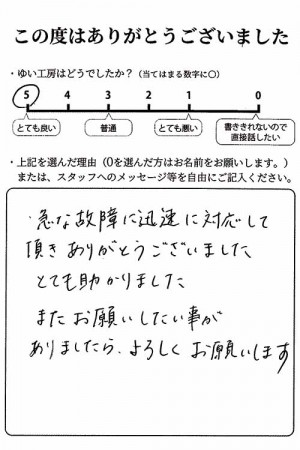 この度はありがとうございました
・ゆい工房はどうでしたか?(当てはまる数字に○)
5 4 3 2 1 0
とても良い 普通 とても悪い 書ききれないので
直接話したい
・上記を選んだ理由(0を選んだ方はお名前をお願いします。)
または、スタッフへのメッセージ等を自由にご記入ください。
・急な故障に迅速に対応して
頂きありがとうございました
とても助かりました
またお願いしたい事が
ありましたら、よろしくお願いします